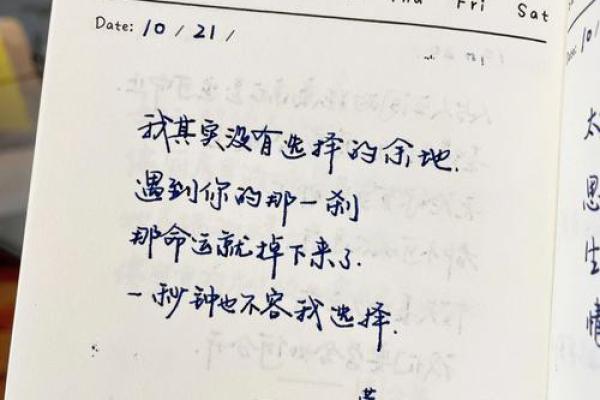 Thu Fri Sat
Date: 10 / 21 /
我其实没有选择的余地.
遇到你的那一刹
那命运就掉下来了.
一秒钟也不容我选择.
10/
太
思
生
情